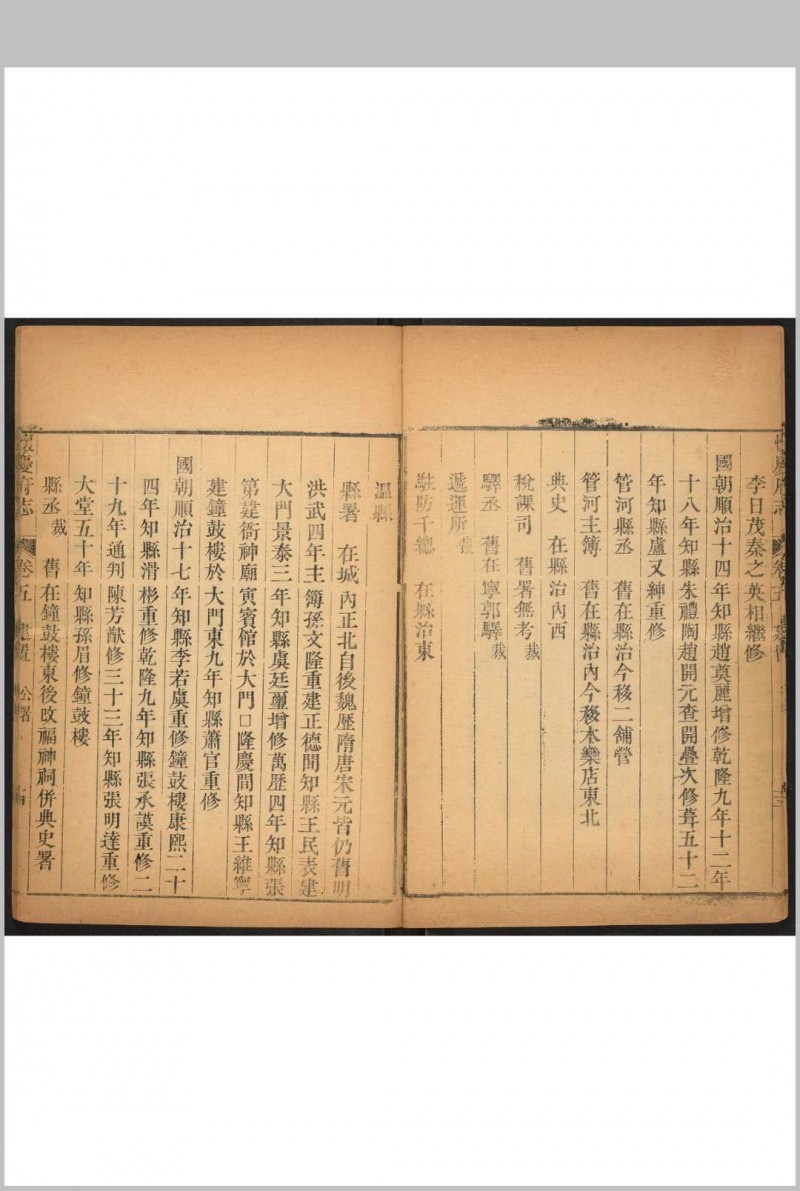 李日茂秦之英相繼修
國朝順治十四年知縣趙奠麗增修乾隆九年十二年
十八年知縣朱禮陶趙開元查開疊次修葺五十二
年知縣盧又紳重修
管河縣丞 舊在縣治今移二舖營
管河主簿 舊在縣治內今移木欒店東北
典史 在縣治內西
稅課司 舊署無考裁
驛丞 舊在寧郭驛裁
遞運所 裁
駐防千總 在縣治東
溫縣
縣署 在城內正北自後魏歷隋唐宋元皆仍舊明
洪武四年主簿孫文隆重建正德間知縣王民表建
大門景泰三年知縣虞廷璽增修萬歷四年知縣張
第建衙神廟寅賓館於大門口隆慶間知縣王維寧
建鐘鼓樓於大門東九年知縣蕭官重修
國朝順治十七年知縣李若虞重修鐘鼓樓康熙二十
四年知縣滑彬重修乾隆九年知縣張承謨重修二
十九年通判陳芳猷修三十三年知縣張明達重修
大堂五十年知縣孫眉修鐘鼓樓
縣丞裁 舊在鐘鼓樓東後改福神祠併典史署
懷慶府志 卷五 建置 公署 古